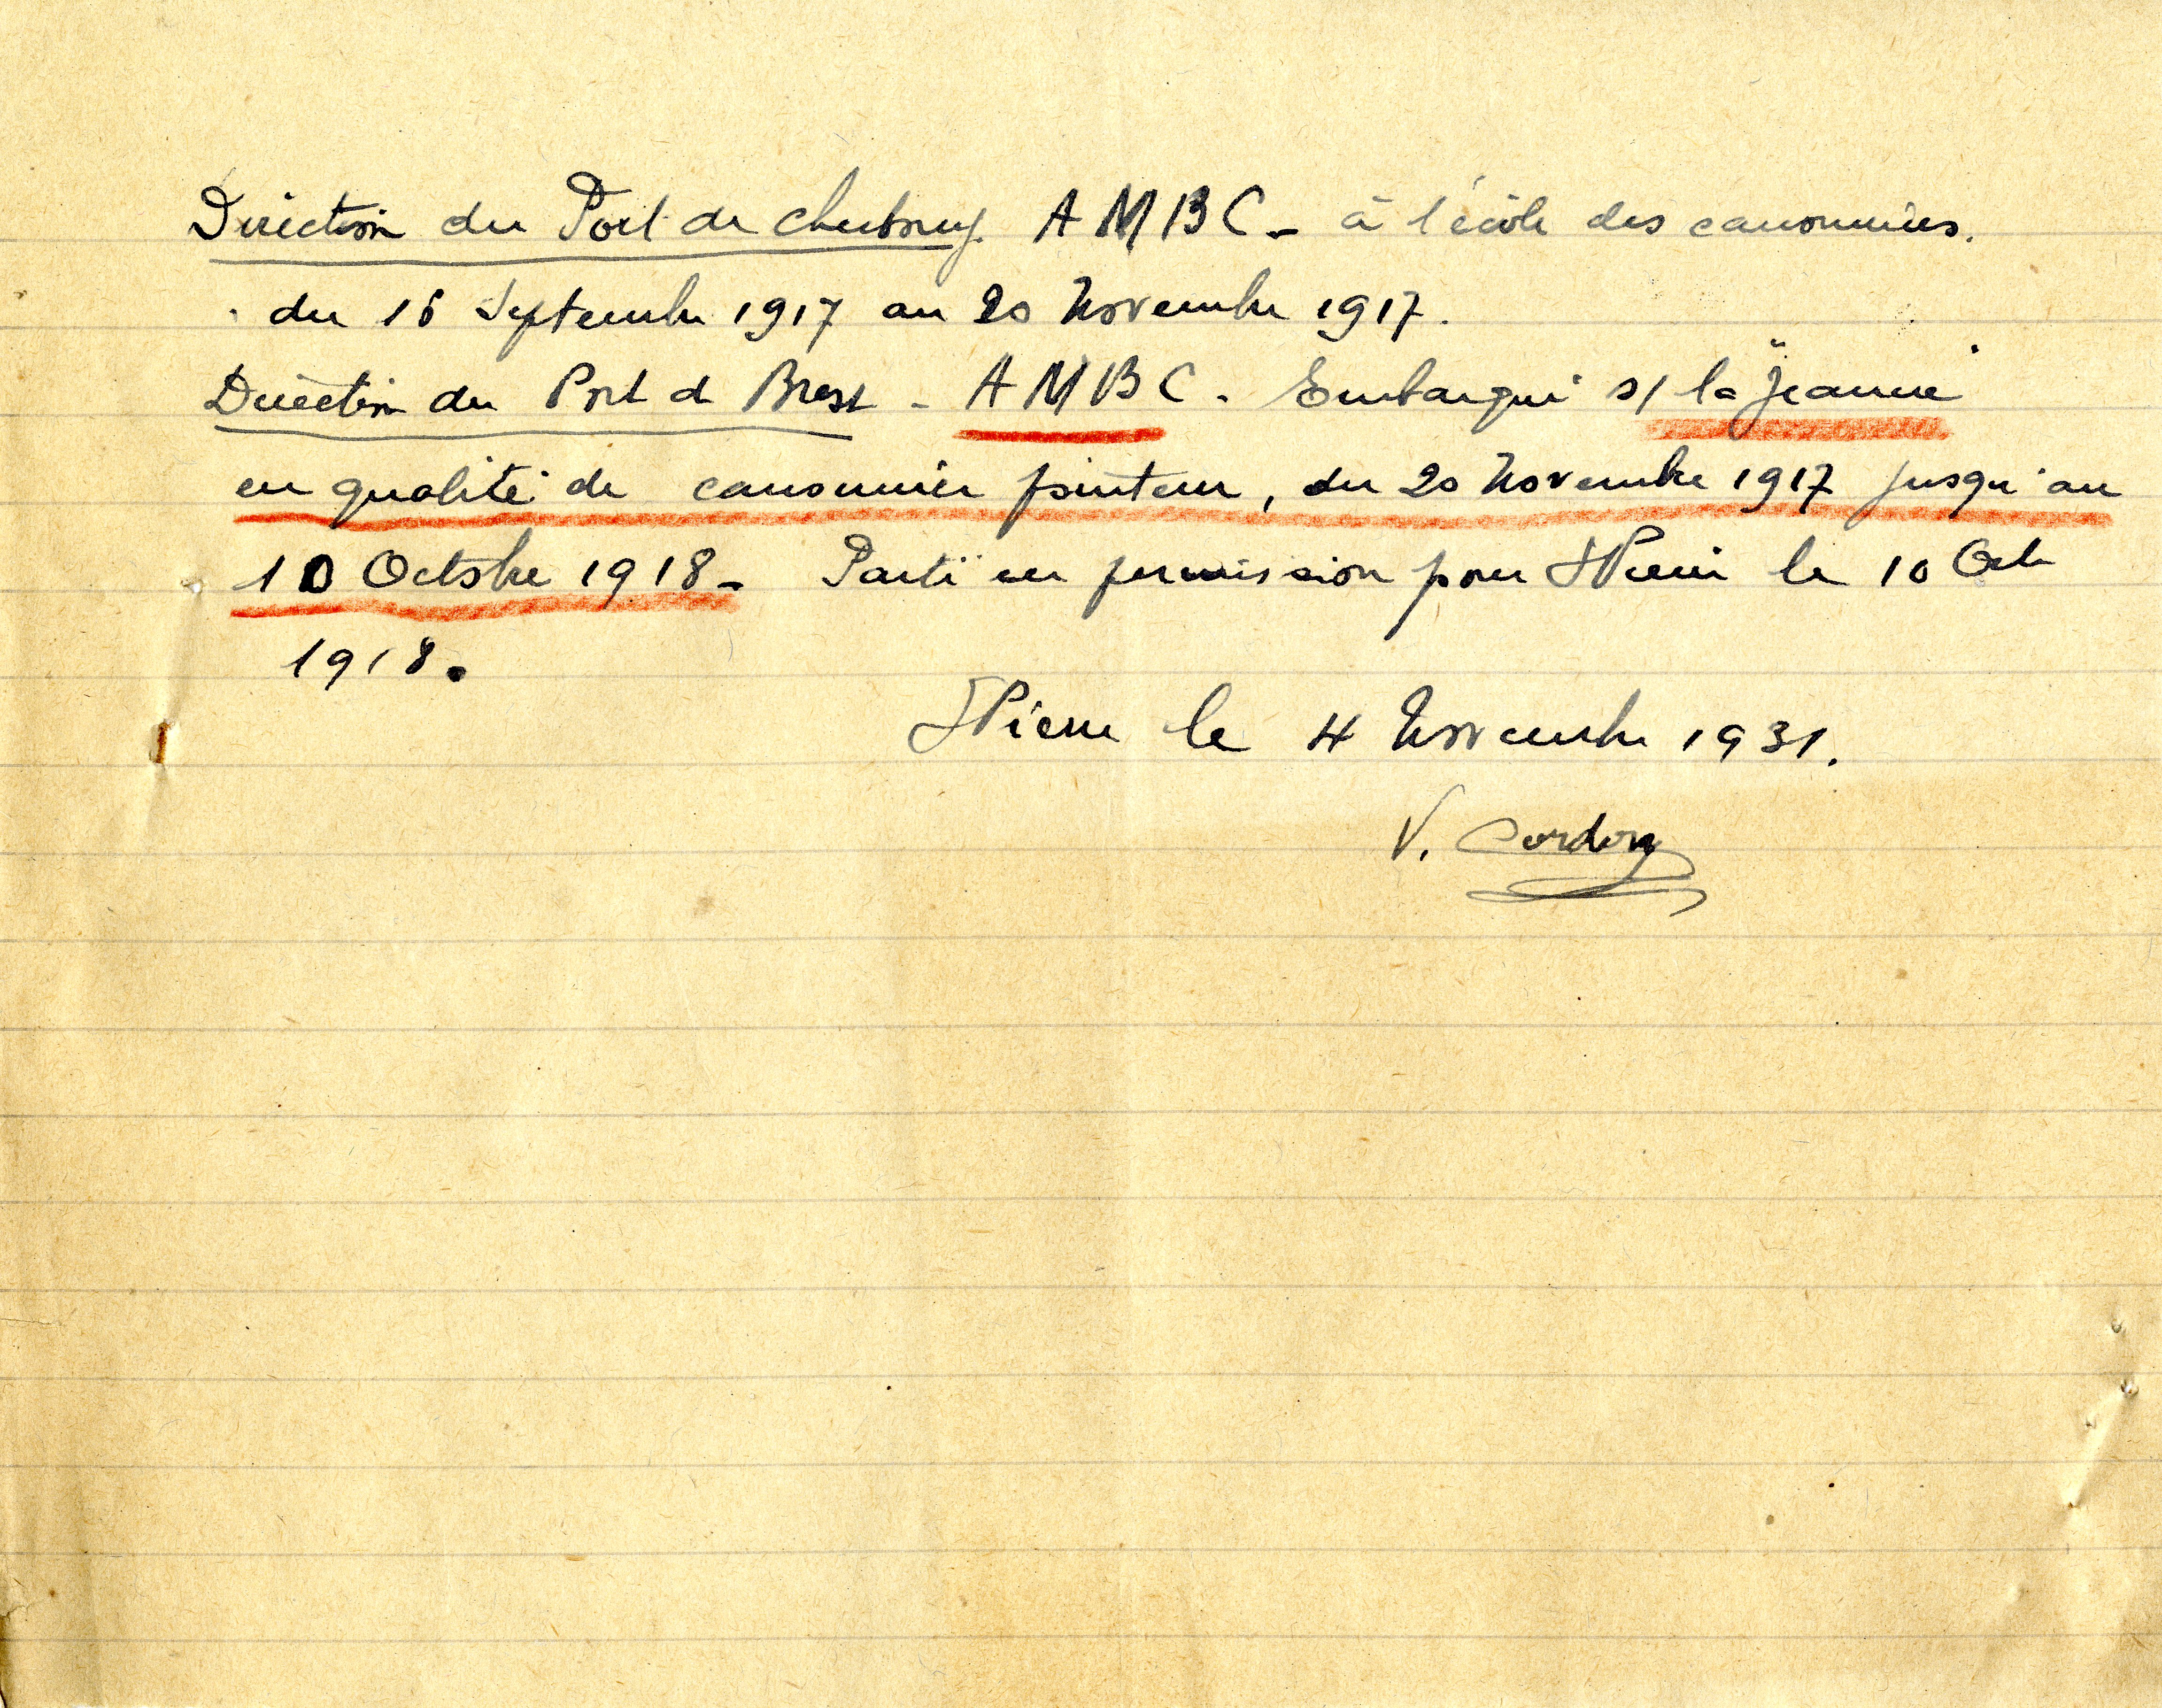 Direction du Port de Cherbourg. AMBC - à l'école des canonniers.
du 16 Septembre 1917 au 20 Novembre 1917.
Direction du Port de Brest - AMBC. Embarqué s/ la "Jeanne"
en qualité de canonnier pointeur, du 20 Novembre 1917 jusqu'au
10 Octobre 1918 - Parti en permission pour St Pierre le 10 Oct
1918.
St Pierre le 4 Novembre 1931.
V. Cordon